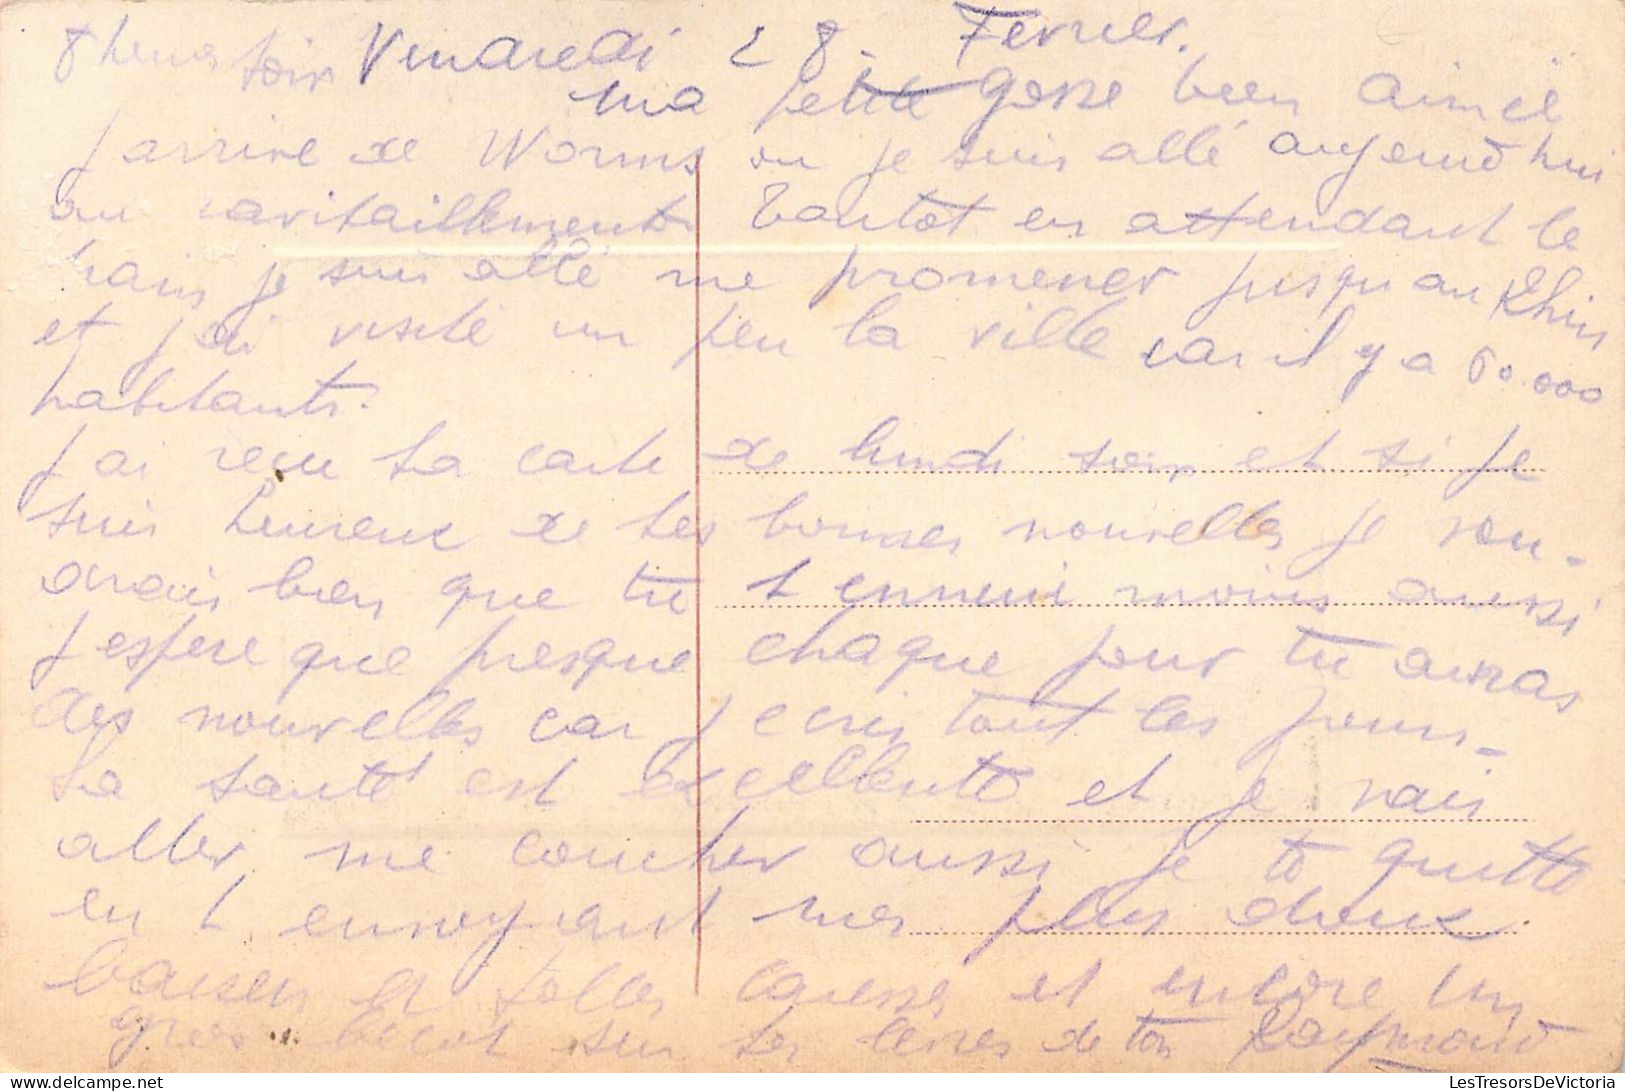 8 heures soir Vendredi 28. Fevrier.
ma petite gosse bien aimée
j arrive de Worms ou je suis allé aujourd hui
au ravitaillement. Tantot en attendant le
train je suis allé me promener jusqu au Rhin
et j ai visité un peu la ville car il y a 60.000
habitants.
J ai recu ta carte de lundi soir et si je
suis heureux de tes bonnes nouvelles je vou-
drais bien que tu t ennuie moins aussi
j espere que presque chaque jour tu auras
des nouvelles car j ecris tout les jours-
La santé est excellente et je vais
aller me coucher aussi je te quitte
en t envoyant mes plus doux
baisers et folles caresses et encore un
gros becot sur tes levres de ton Raymond
LesTresorsDeVictoria